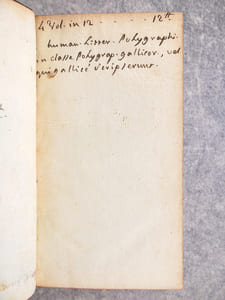 4 Vol. in 12 . . . . . 12 ₶
human. Litter. Polygraphi.
in classe Polygrap. gallicor., vel
qui gallicè scripserunt.